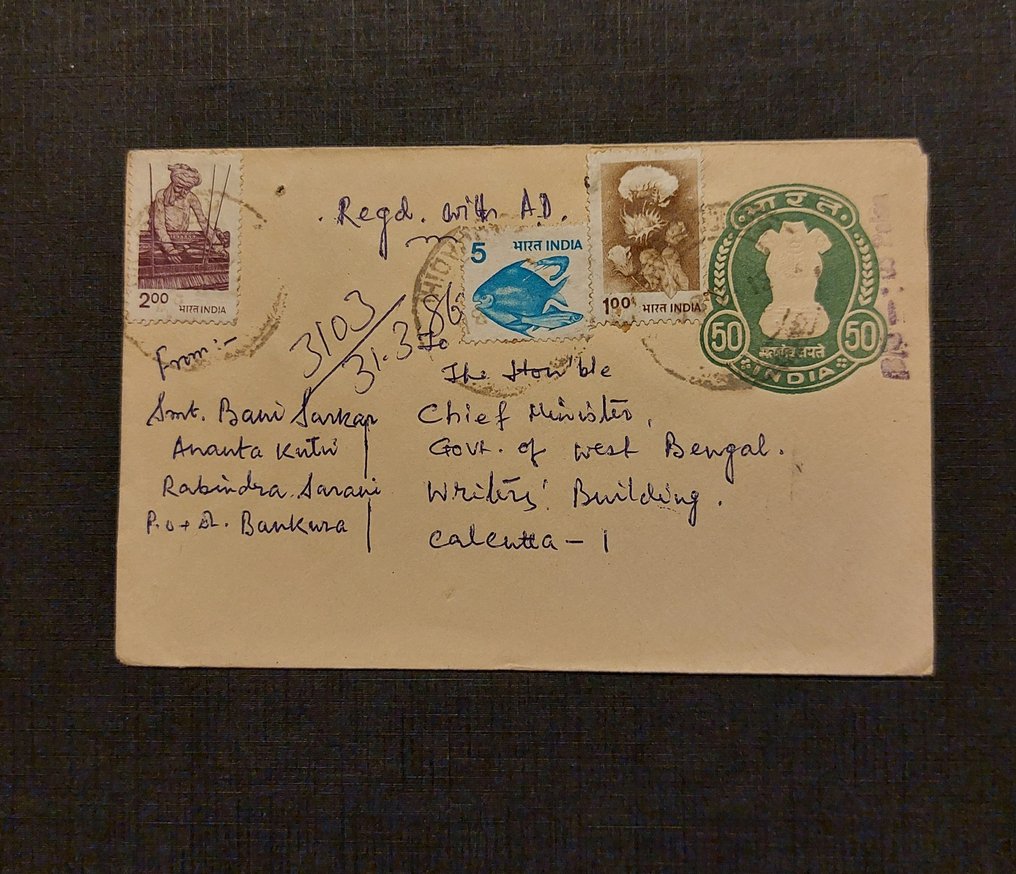 Regd. with A.D.
2.00
भारत INDIA
5 भारत INDIA
1.00 भारत INDIA
भारत
50 50
सत्यमेव जयते
INDIA
3103
31.3.86
From :-
Smt. Bani Sarkar
Ananta Kutir
Rabindra Sarani
P.O + Dt. Bankura
To
The Hon'ble
Chief Minister,
Govt. of West Bengal.
Writers' Building.
Calcutta - 1